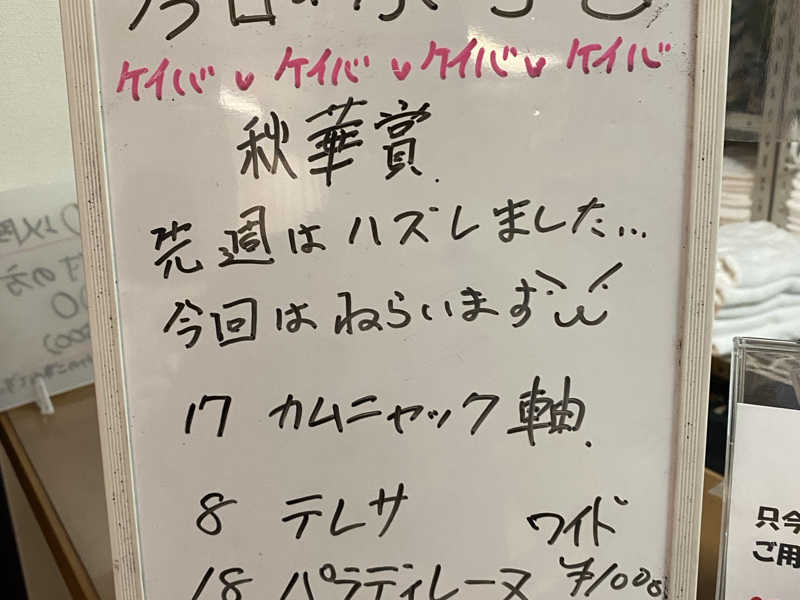 ケイバ ケイバ ケイバ ケイバ
秋華賞
先週はハズレました...
今回はねらいます
17 カムニャック 軸.
8 テレサ ワイド
18 パラディレーヌ ¥1000
只今
ご用